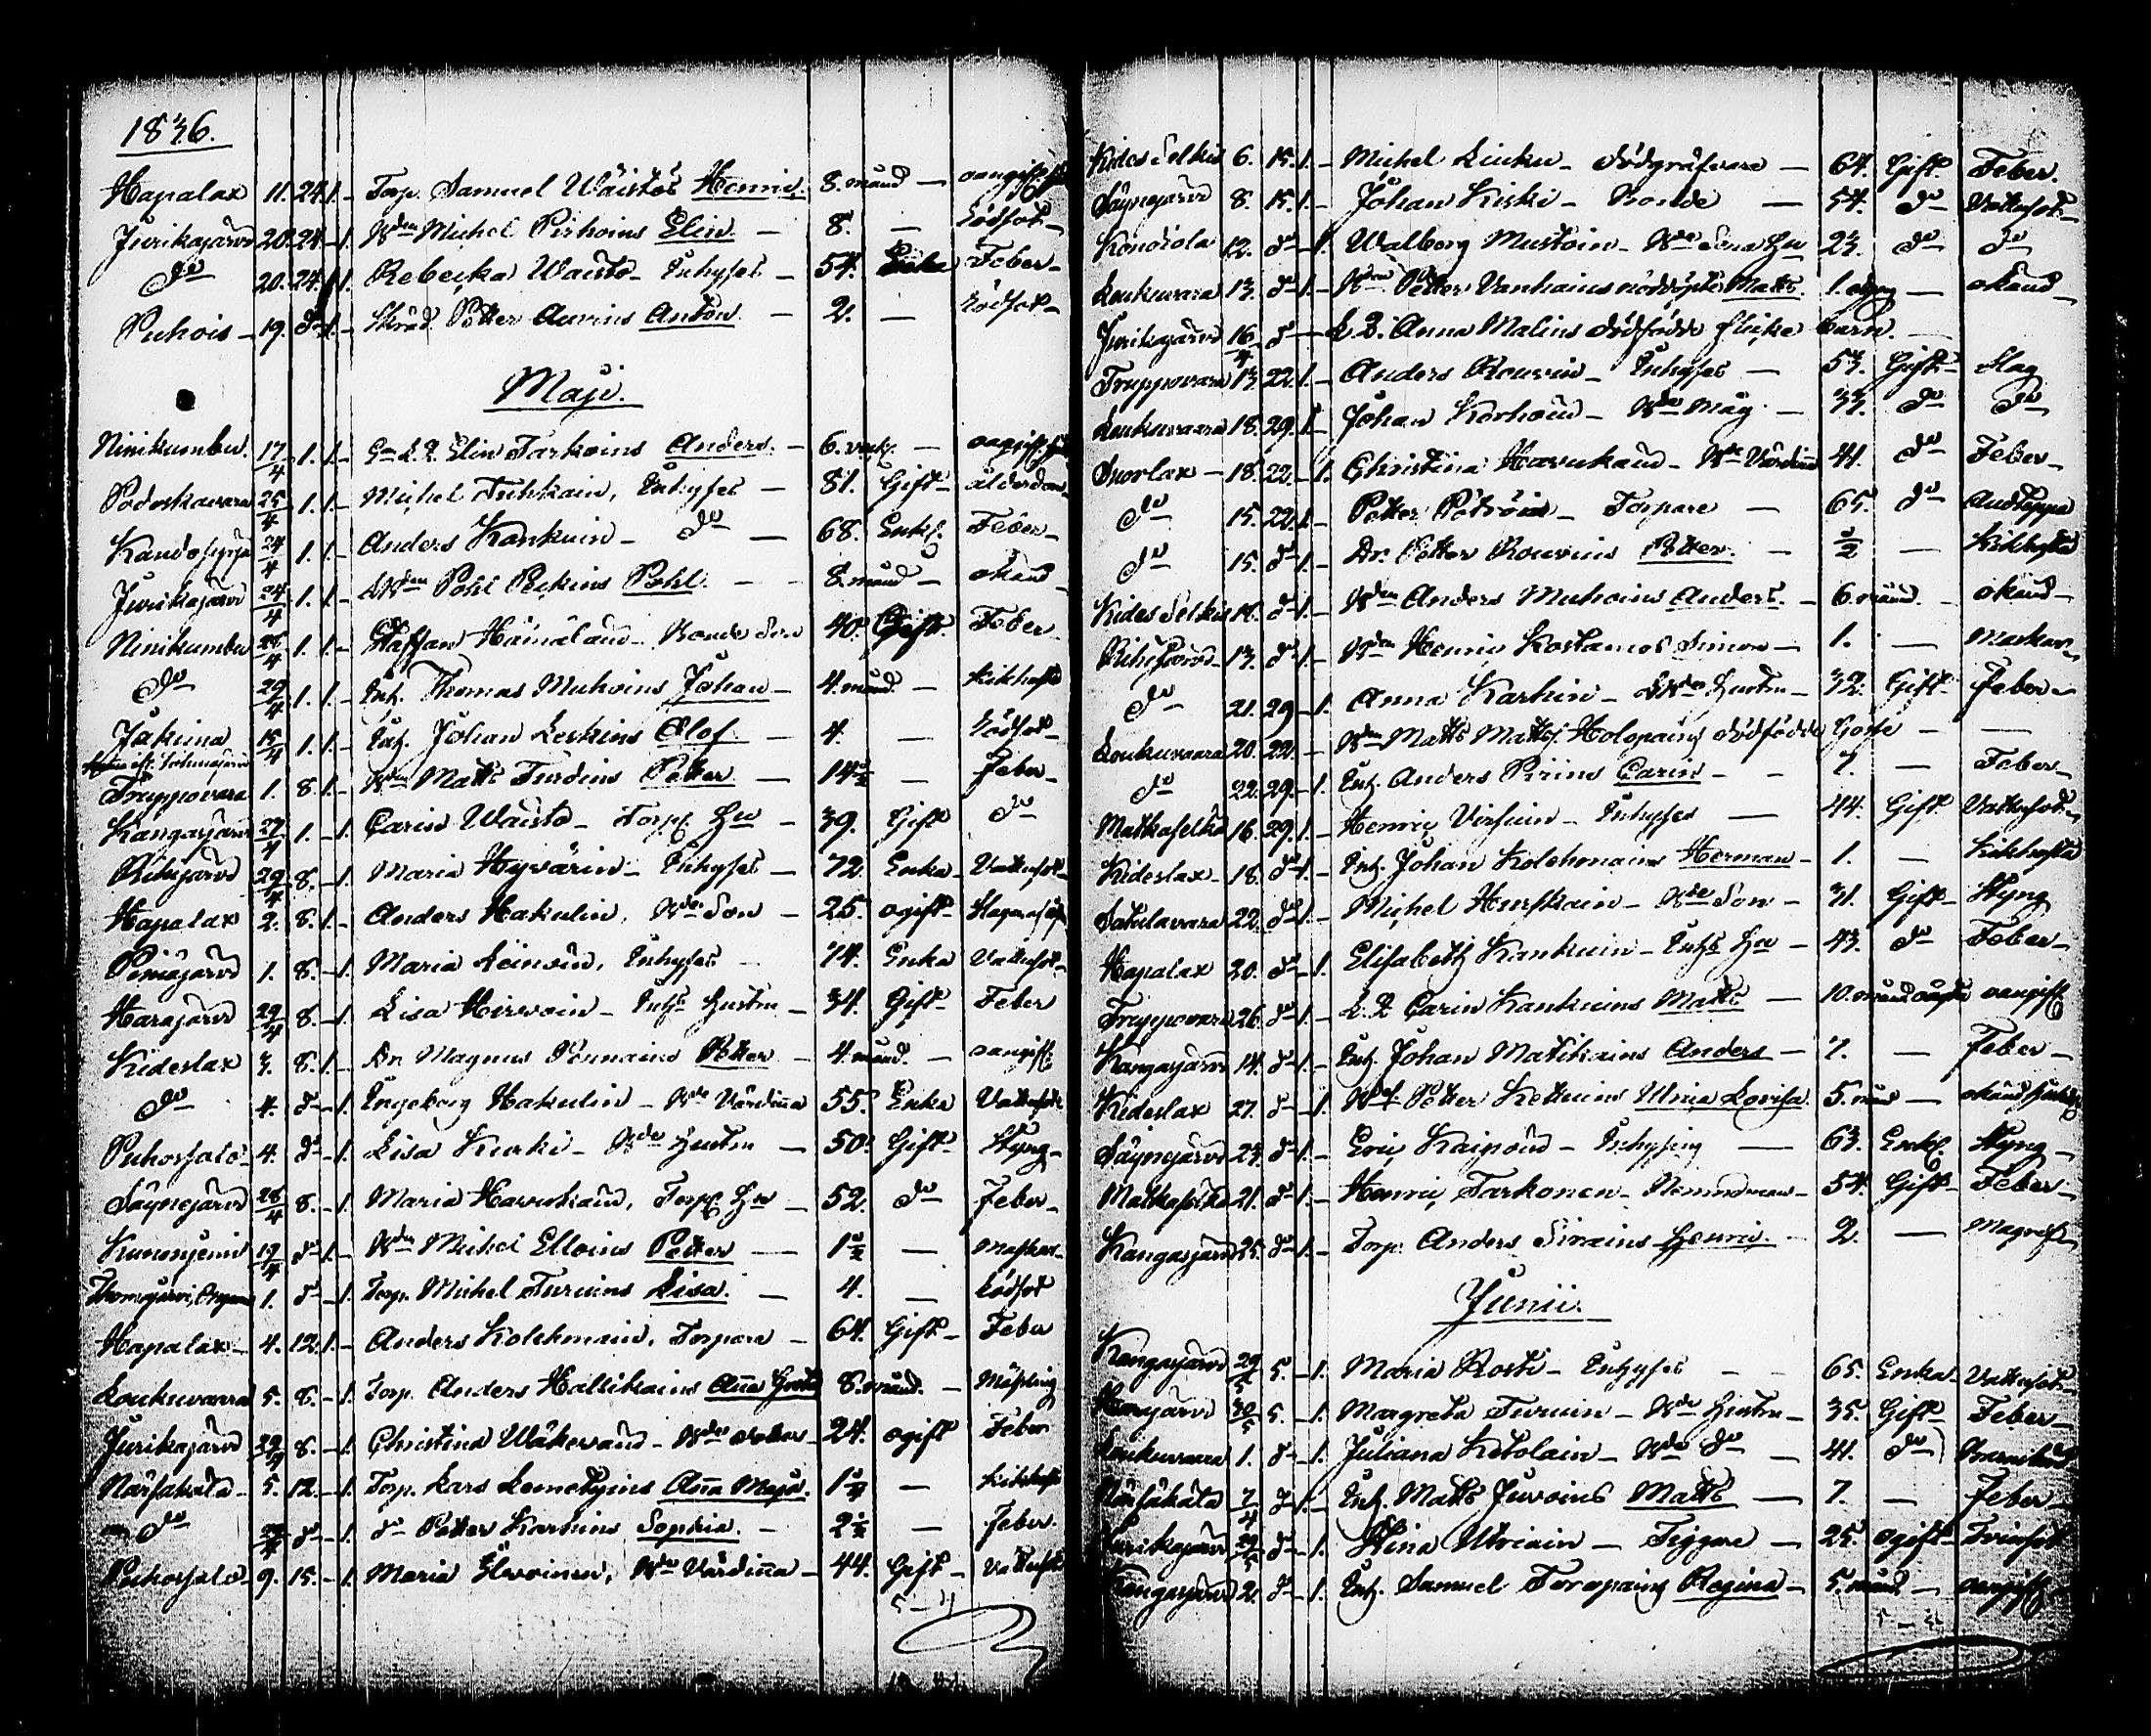 1836.
Hapalax 11. 24. 1. – Torp. Samuel Wäistös Henric. 8. månd – oangift
Jurikajärvi 20. 24. – 1. Bden Michel Pirhoins Elin. – 8. – Rödsot –
do 20. 24. – 1. Rebecka Waisto – Inhyses – 54. Enka Feber –
Puhois – 19. do 1. – Skräd. Petter Auvins Anton. – 2. – Rödsot –
Maji.
Niinikumbu. 17/4 1. 1. – Gm L. Q. Elin Tarkoins Anders. – 6. veck. – oangift
Podoskavara 25/4 1. 1. – Michel Tuhkain, Inhyses – 81. Gift – ålderdom
24/4 1. 1. – Anders Kankuin – do – 68. Enkl. Feber –
Jurikajärvi 24/4 1. 1. – Bden Påhl Peckins Påhl. – – 8. månd – okänd –
Niinikumbu 26/4 1. 1. – Staffan Hämäläind – Bonde Son 40. Gift. Feber
do 29/4 1. 1. – Inh. Thomas Muhoins Johan – 4. månd. – Kikhosta
Jakima 15/4 1. 1. – Inh. Johan Leskins Olof – 4. – Rödsot –
Truppovara 1. 8. 1. – Bden Matts Turdins Petter – 1 1/2 – Feber –
Kangasjärvi 27/4 1. – 1. Carin Waisto – Torp. Hu – 39. Gift do
Rihijärvi 29/4 8. – 1. Maria Hyvärin – Inhyses – 72. Enka – Vattusot –
Hapalax 2. 8. 1. – Anders Hakulin, Bde Son – 25. ogift –
Pimäjärvi 1. 8. – 1. Maria Leinoin, Inhyses – 74. Enka Vattusot –
Harajärvi 29/4 8. – 1. Lisa Hirvoin – Inhs Hustru – 34. Gift – Feber
Kideslax 3. 8. 1. – Dr. Magnus Pennains Petter – 4. månd. – oangift
do 4. do – 1. Ingeborg Hakulin – Bde Värdinna 55. Enka Vattusot
Puhossalo – 4. do – 1. Lisa Kurki – Bde Hustru – 50. Gift – Styng –
Säynejärvi 28/4 8. – 1. Maria Havukain, Torp. Hu – 52. do Feber –
19/4 do 1. – Bden Michel Elloins Petter – 1 1/2 – Maskar –
1. do – 1. Torp. Michel Turuins Lisa. – 4. – Rödsot
Hapalax – 4. 12. 1. – Anders Kolehmain, Torpare – 64. Gift – Feber
Loukuvaara 5. 8. – 1. Torp. Anders Hallikains Aña Greta 8. månd. – Mässling
Jurikajärvi 29/4 8. – 1. Christina Wäkeväind – Bde dotter – 24. ogift Feber
Närsäkälä – 5. 12. – 1. Torp. Lars Lemetyins Aña Maja. 1 1/2 – Kikhosta
do 24/4 do – 1. do Petter Karhins Sophia. – 2 1/2 – Feber.
Puhossalo – 9. 15. – 1. Maria Ilvoinen, Bde Värdiña – 44. Gift – Vattusot
Kides Selkis 6. 15. 1. – Michel Liuku – dödgräfvare – 64. Gift. Feber.
Säynejärvi 8. 15. 1. – Johan Kiski – Bonde – 54. do Vattusot –
Konoiola 12. do – 1. Walborg Mustoin – Bde Sona Hu 23. do do
Loukuvaara 13. do 1. – Bden Petter Vanhains nöddöpte Matts. 1. – okänd –
Jurikajärvi 16/4 do – L. Q. Anna Malins dödfödde flicke barn.
Truppovara 13. 22. 1. – Anders Rouvin – Inhyses – 53. Gift – Slag
Loukuvaara 18. 29. 1. – Johan Korhoin – Bde Måg – 33. do do
Suorlax – 18. 22. – 1. Christina Havukain – Bde Värdiña 41. do Feber –
do 15. 22. 1. – Petter Pöträin – Torpare – 65. do Andtäppa
do 15. do 1. – Dr. Petter Rouvins Petter. – 1/2 – Kikhosta
Kides Selkis 14. do 1. – Bden Anders Muhoins Anders. – 6. månd. – okänd –
Rihijärvi – 13. do 1. – Bden Henric Kostamos Simon – 1. – Maskar –
do 21. 29 – 1. Anna Karhin – Bde Hustru – 32. Gift – Feber –
Loukuvaara 20. 22. – Bden Matts Mattsj. Holopains dödfödde Gosse – –
do 22. 29. – 1. Inh. Anders Piiins Carin – – 7. – Feber –
Matkaselkä 16. 29. 1. – Henric Virsuin – Inhyses – 44. Gift. Vattusot –
Kideslax – 18. do 1. – Inh. Johan Kolehmains Herman – 1. – Kikhosta
Satulavara 22. do 1. – Michel Hurskain – Bde Son – 31. Gift – Styng
Hapalax 20. do – 1. Elisabeth Kankuin – Inhs Hu – 43. do Feber –
Truppovara 26. do 1. – L. Q. Carin Kankuins Matts – 10. månd oangift
Kangasjärvi 14. do 1. – Inh. Johan Matikains Anders – 7. – Feber –
Kideslax 27. do – 1. Petter Kettuins Ulrica Lovisa 5. månd – okänd
Säynejärvi 23. do 1. – Eric Kaipoind – Inhysing – 63. Enkl. Styng –
Matkaselkä 21. do 1. – Henric Tarkonen – Nemndeman – 54. Gift – Feber –
Kangasjärvi 25. do 1. – Torp. Anders Sirains Henric. – 2. – Magref
Junii.
Kangasjärvi 29/5 5. – 1. Maria Rosti – Inhyses – – 65. Enka – Vattusot –
30/5 5. – 1. Margreta Turuin – Bde Hustru – 35. Gift – Feber –
Loukuvaara 1. do – 1. Juliana Ketolain – Bde do – 41. do Barnsbörd
Närsäkälä 7/4 do 1. – Inh. Matts Juvoins Matts – 7. – Feber –
Jurikajärvi 29/5 do – 1. Stina Utriain – Tiggare – 25. ogift –
Kangasjärvi 2. do – 1. Inh. Samuel Toropains Regina – 5. månd. – oangift